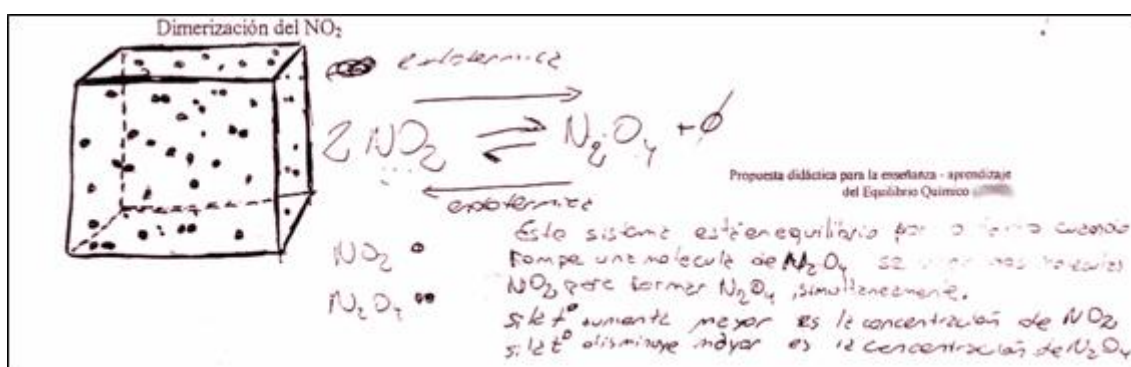 Dimerización del NO₂
exotermica
2 NO₂ ⇌ N₂O₄ + ϕ
endotermica
Propuesta didáctica para la enseñanza - aprendizaje
del Equilibrio Químico
NO₂
N₂O₄
Este sistema está en equilibrio por cuando
rompe una molecula de N₂O₄ se moleculas
NO₂ para formar N₂O₄, simultaneamente.
si la t° aumenta mayor es la concentración de NO₂
si la t° disminuye mayor es la concentración de N₂O₄